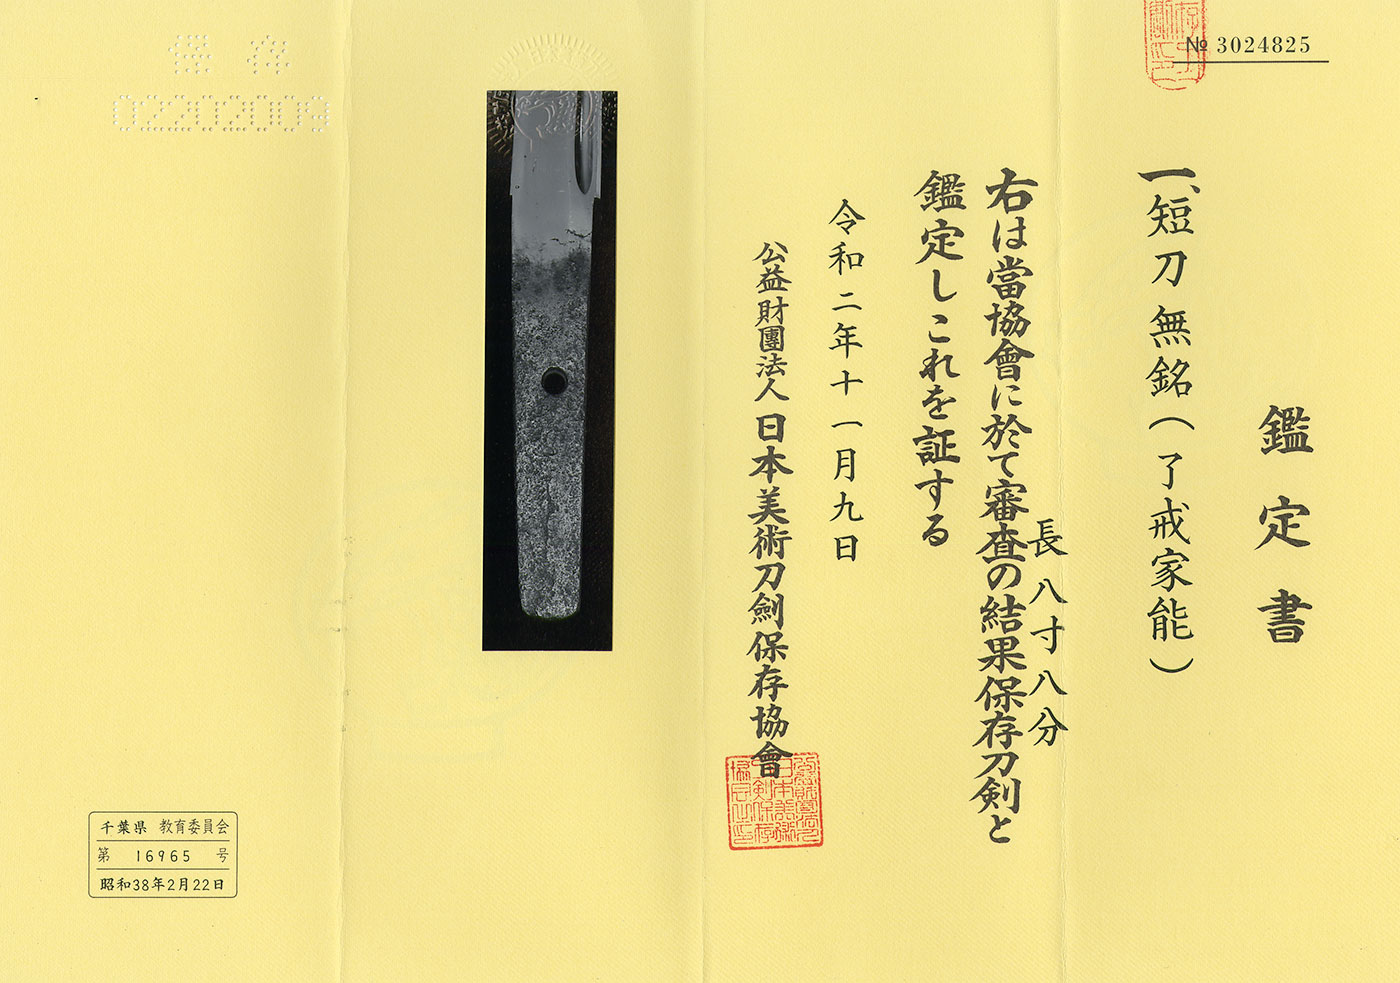 № 3024825
鑑定書
一、短刀無銘(了戒家能)
長八寸八分
右は當協會に於て審査の結果保存刀剣と
鑑定しこれを証する
令和二年十一月九日
公益財團法人日本美術刀劍保存協會
保存
02202009
千葉県 教育委員会
第 16965 号
昭和38年2月22日